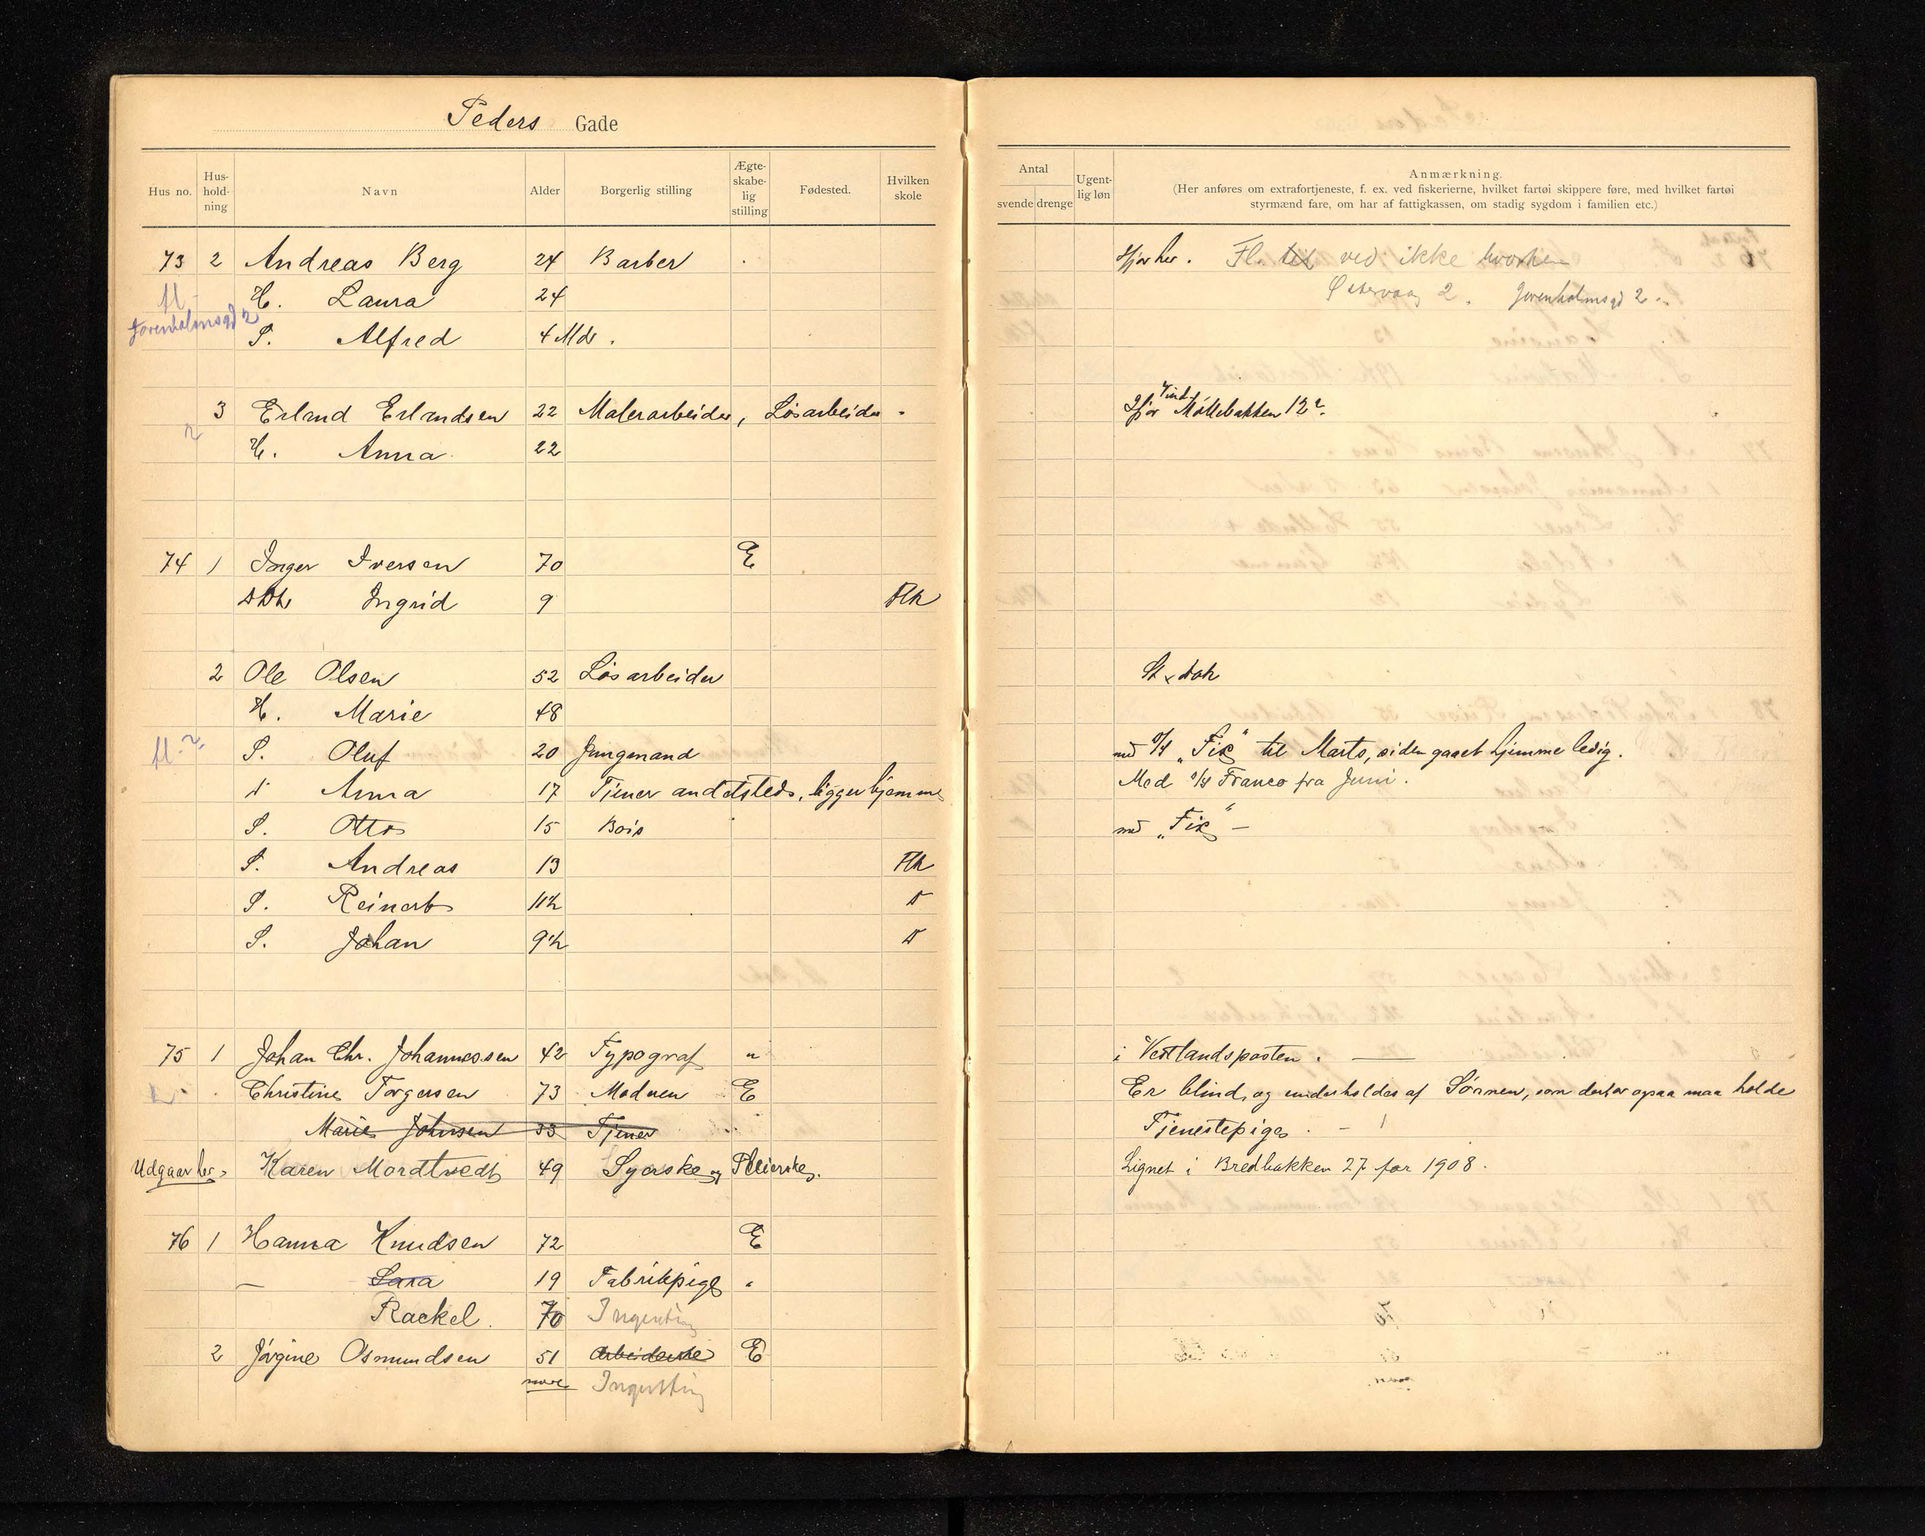 Peders Gade
Hus no. Hus-hold-ning Navn Alder Borgerlig stilling Ægte-skabe-lig stilling Fødested. Hvilken skole
73 2 Andreas Berg 24 Barber
fl. H. Laura 24
Jorenholmsgd 2 S. Alfred 4 Md.
3 Erland Erlandsen 22 Malerarbeider, Løsarbeider
H. Anna 22
74 1 Inger Iversen 70 E
Ingrid 9 Flk
2 Ole Olsen 52 Løsarbeider
H. Marie 48
fl. S. Oluf 20 Jungmand
D Anna 17 Tjener andetsteds, ligger hjemme
S. Otto 15 Bois
S. Andreas 13 Flk
S. Reinert 11½ D
S. Johan 9½ D
75 1 Johan Chr. Johannessen 42 Typograf "
Christine Torgersen 73 Moderen E
Marie Johnsen 33 Tjener
Udgaar her Karen Mordtvedt 49 Syerske og Pleierske.
76 1 Hanna Knudsen 72 E
— Sara 19 Fabrikpige "
Rackel. 70 Ingenting
2 Jørgine Osmundsen 51 Arbeiderske E
Ingenting
Antal svende drenge Ugent-lig løn
Anmærkning.
(Her anføres om extrafortjeneste, f. ex. ved fiskerierne, hvilket fartøi skippere føre, med hvilket fartøi
styrmænd fare, om har af fattigkassen, om stadig sygdom i familien etc.)
Ifjor her. Fl. til ved ikke hvorhen
Østervaag 2. Jorenholmsgd 2
Ifjor Vind Møllebakken 12
med D/S "Fix" til Marts, siden gaaet hjemme ledig.
Med D/S Franco fra Juni.
med "Fix" —
i Vestlandsposten. —
Er blind, og underholdes af Sønnen, som derfor ogsaa maa holde
Tjenestepige. —
Lignet i Bredbakken 27 for 1908.